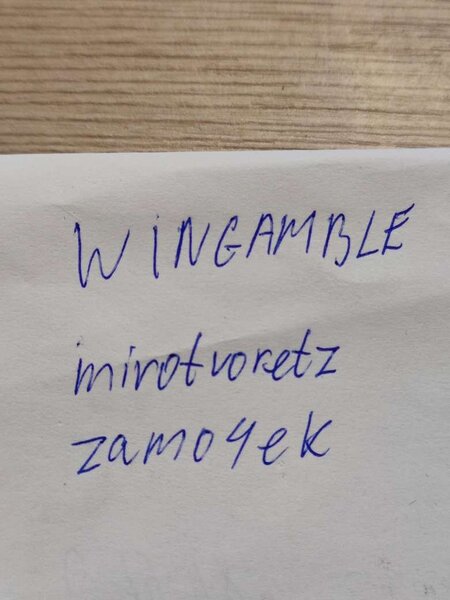 WiNGAMBLE
mirotvoretz
zamo4ek